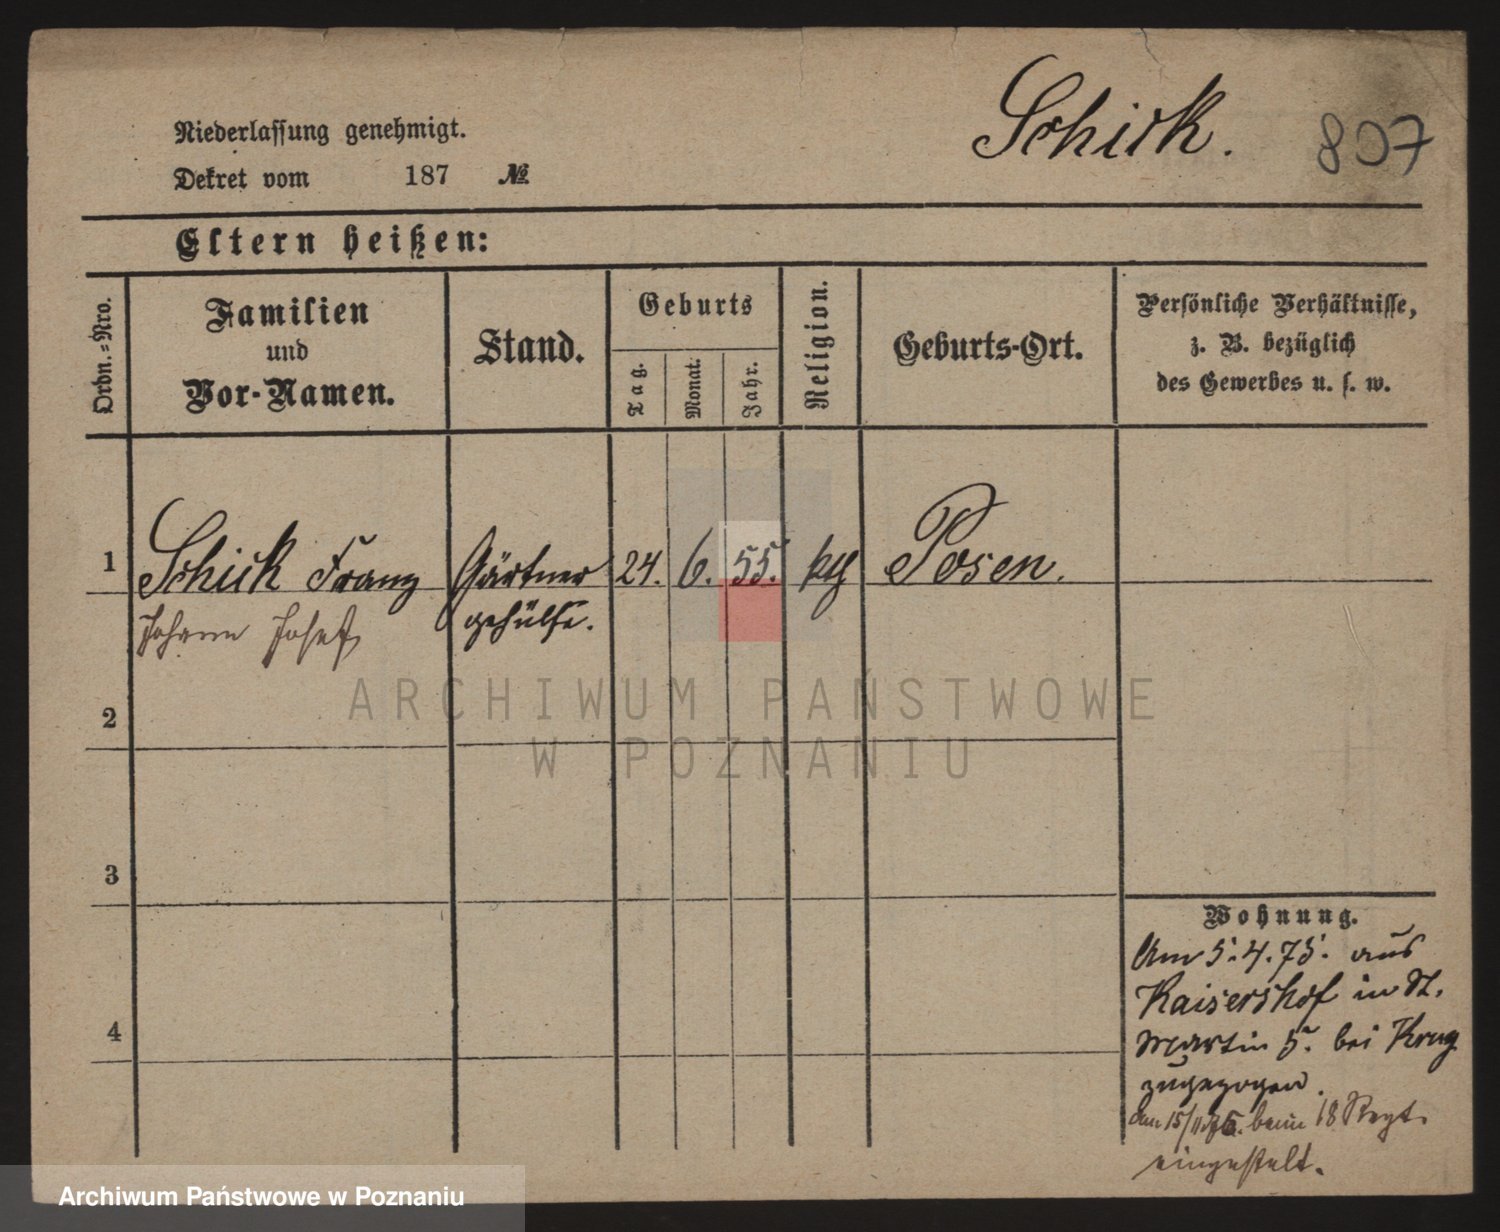 Schick.
807
Niederlassung genehmigt.
Dekret vom 187 №
Eltern heißen:
Ordn.=Nro.
Familien
und
Vor-Namen.
Stand.
Geburts
Tag.
Monat.
Jahr.
Religion.
Geburts-Ort.
Persönliche Verhältnisse,
z. B. bezüglich
des Gewerbes u. s. w.
1 Schick Franz Gärtner 24. 6. 55. kth Posen.
Johann Josef gehülfe.
ARCHIWUM PAŃSTWOWE
W POZNANIU
2
3
4
Wohnung.
Am 5.4.75. aus
Kaisershof in St.
Martin 5. bei Krug
zugezogen.
am 15/11 beim 18 Regt.
eingestelt.
Archiwum Państwowe w Poznaniu